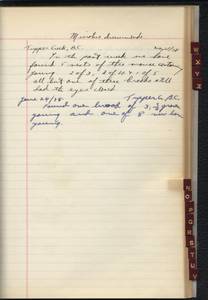 Microtus drummondi
Tupper Creek, B.C.
In the past week we have
found 5 nests of this mouse contain
young. 2 of 3, 2 of 4 & 1 of 5
all but one of these broods still
had the eyes closed
June 24/38. Tupper Cr. B.C.
Found one brood of 3, ½ grown
young and one of 8 new born
young.
W
X
Y
Z
N
O
P
Q
R
S
T
U
V